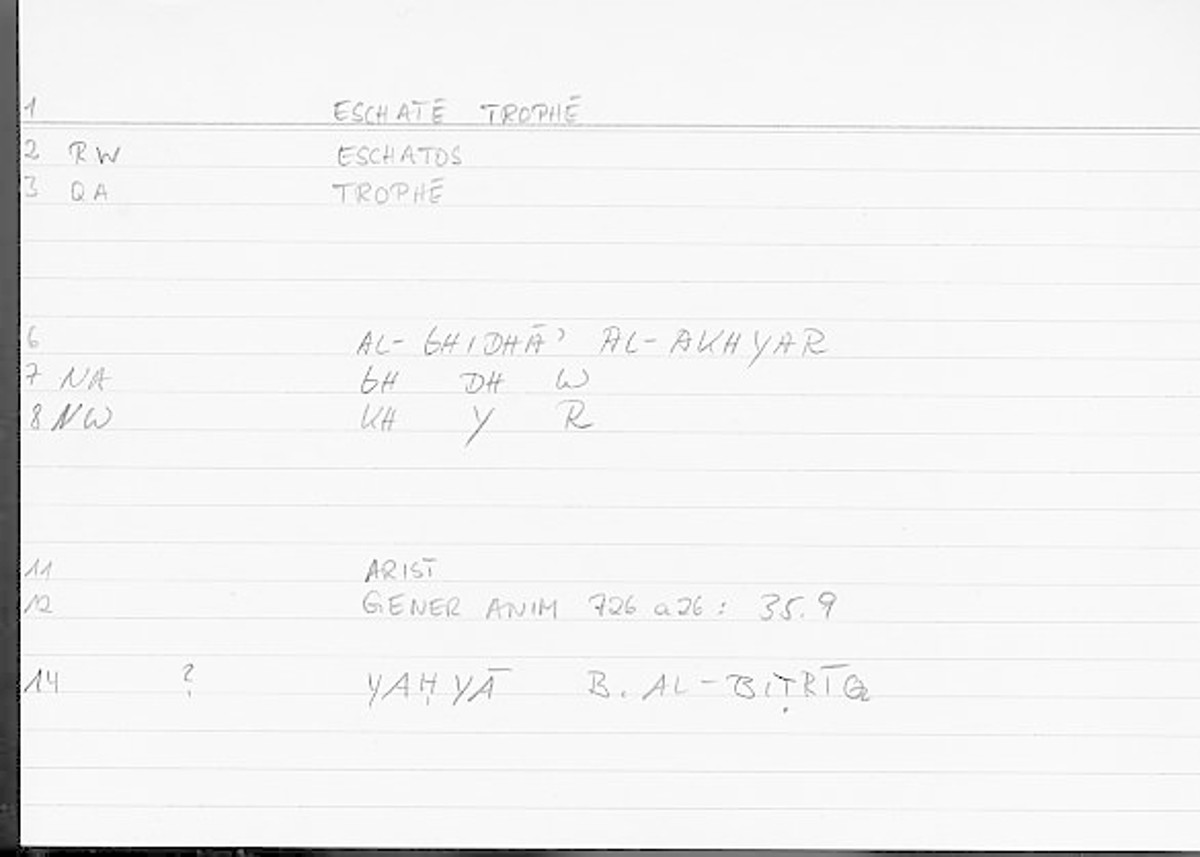 1 ESCHATĒ TROPHĒ
2 RW ESCHATOS
3 QA TROPHĒ
6 AL-GHIDHĀʾ AL-AKHYAR
7 NA GH DH W
8 NW KH Y R
11 ARIST
12 GENER ANIM 726 a 26: 35.9
14 ? YAḤYĀ B. AL-BIṬRĪQ